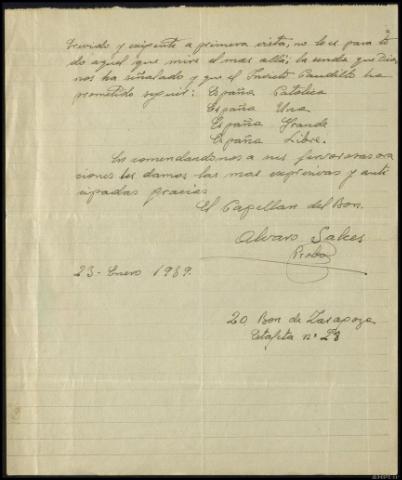 trevido y exigente a primera vista, no lo es para to
do aquel que mire el mas allá; la senda que Dios
nos ha señalado y que el Invicto Caudillo ha
prometido seguir: España Catolica
España Una
España Grande
España Libre.
En comendandonos a sus fervorosas ora
ciones les damos las mas expresivas y anti
cipadas gracias
El Capellan del Bon.
Alvaro Salces
Presbo
23 - Enero 1939.
20 Bon de Zaragoza
Estafeta nº 28